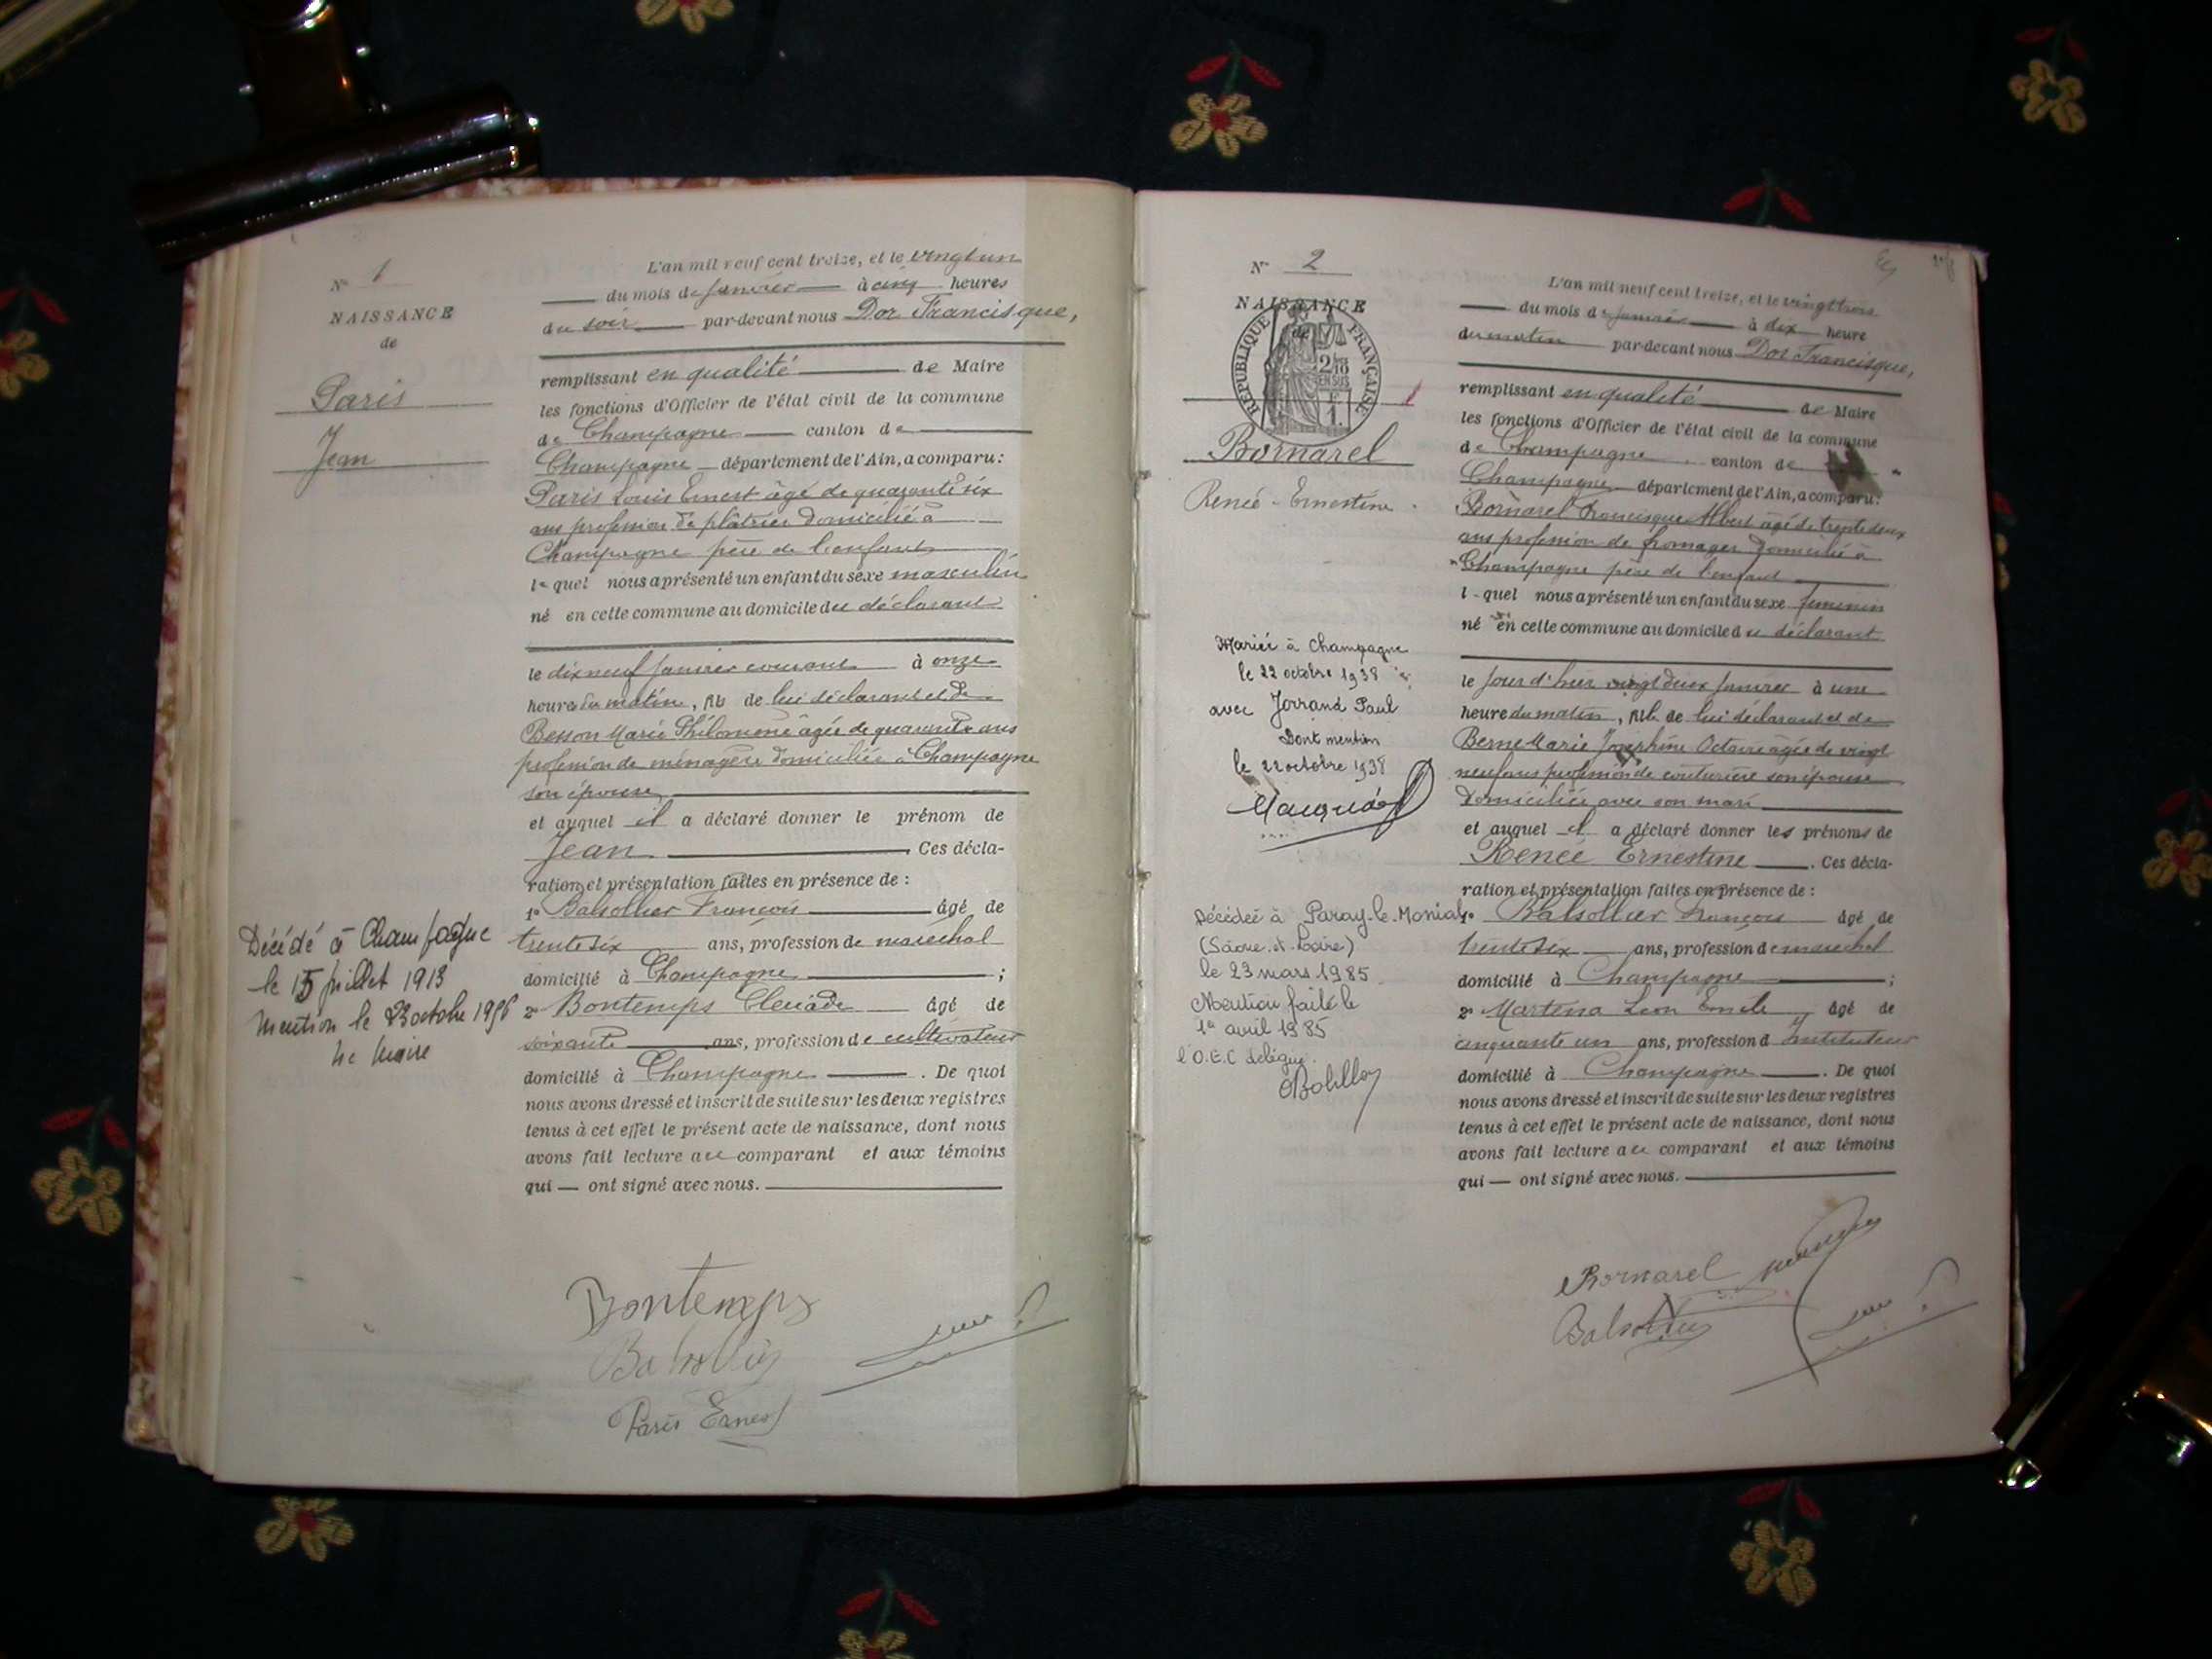 N° 1
NAISSANCE
de
Paris
Jean
L'an mil neuf cent treize, et le vingt un
du mois de Janvier à cinq heures
du soir par-devant nous Dor Francisque,
remplissant en qualité de Maire
les fonctions d'Officier de l'état civil de la commune
de Champagne canton de
Champagne département de l'Ain, a comparu:
Paris Louis Ernest âgé de quarante six
ans profession de plâtrier domicilié à
Champagne père de l'enfant
lequel nous a présenté un enfant du sexe masculin
né en cette commune au domicile du déclarant
le dix neuf Janvier courant à onze
heures du matin, fils de lui déclarant et de
Besson Marie Philomène âgée de quarante ans
profession de ménagère domiciliée à Champagne
son épouse
et auquel il a déclaré donner le prénom de
Jean. Ces décla-
ration et présentation faites en présence de :
1° Balsollier François âgé de
trente six ans, profession de maréchal
domicilié à Champagne ;
2° Bontemps âgé de
soixante ans, profession de cultivateur
domicilié à Champagne. De quoi
nous avons dressé et inscrit de suite sur les deux registres
tenus à cet effet le présent acte de naissance, dont nous
avons fait lecture au comparant et aux témoins
qui — ont signé avec nous.
Décédé à Champagne
le 15 juillet 1913
Mention le 23 octobre 1996
Le Maire
Bontemps
Balsollier
Paris Ernest
N° 2
NAISSANCE
de
RÉPUBLIQUE FRANÇAISE
2/10 EN SUS
F. 1.
Bornarel
Renée - Ernestine
L'an mil neuf cent treize, et le vingt trois
du mois de Janvier à dix heure
du matin par-devant nous Dor Francisque,
remplissant en qualité de Maire
les fonctions d'Officier de l'état civil de la commune
de Champagne canton de
Champagne département de l'Ain, a comparu:
Bornarel Francisque Albert âgé de trente deux
ans profession de fromager domicilié à
Champagne père de l'enfant
lequel nous a présenté un enfant du sexe féminin
né en cette commune au domicile du déclarant
le jour d'hier vingt deux Janvier à une
heure du matin, fille de lui déclarant et de
Berne Marie Joséphine Octavie âgée de vingt
neuf ans profession de couturière son épouse
domiciliée avec son mari
et auquel il a déclaré donner les prénoms de
Renée Ernestine. Ces décla-
ration et présentation faites en présence de :
1° Balsollier François âgé de
trente six ans, profession de maréchal
domicilié à Champagne ;
2° Léon Emile âgé de
cinquante un ans, profession d Instituteur
domicilié à Champagne. De quoi
nous avons dressé et inscrit de suite sur les deux registres
tenus à cet effet le présent acte de naissance, dont nous
avons fait lecture au comparant et aux témoins
qui — ont signé avec nous.
Mariée à Champagne
le 22 octobre 1938
avec Jorrand Paul
Dont mention
le 22 octobre 1938
Décédée à Paray-le-Monial
(Saône-et-Loire)
le 23 mars 1985
Mention faite le
1er avril 1985
l'O.E.C délégué.
Bornarel
Balsollier